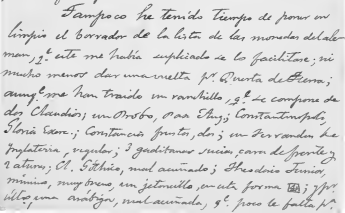 Tampoco he tenido tiempo de poner en
limpio el borrador de la lista de las monedas del ale-
man, q.e este me había suplicado se lo facilitase; ni
mucho menos dar una vuelta p.r Puerta de Tierra;
aunq.e me han traido un ranchillo, q.e se compone de
dos Claudios; un Probo, ; Constantinopolis,
Gloria ; Constancio frustos, dos; un Fernando de
Inglaterra, regular; 3 gaditanas sucias, cara de frente y
2 atunes; Cl. Gothico, mal acuñado; Theodosio Junior,
minimo, muy bueno, un jetoncillo, en esta forma ; y p.r
ultimo una arabiga, mal acuñada, q.e poco le falta p.a